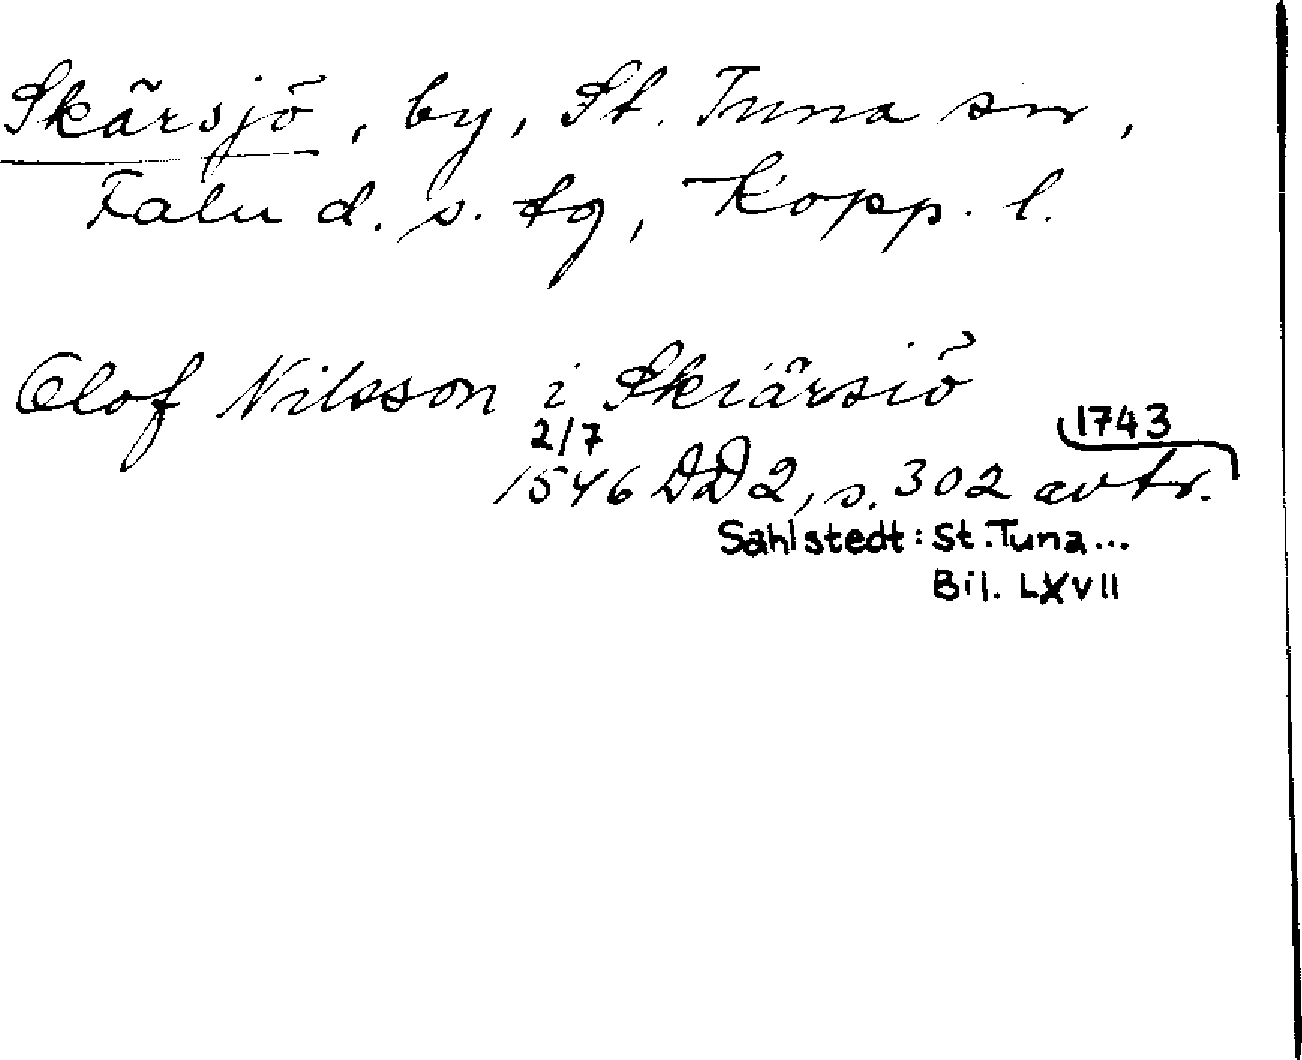 Skärsjö, by, St. Tuna sn,
Falu d. s. tg, Kopp. l.
Olof Nilsson i Skiärsiö
2/7
1743
1546 DD 2, s. 302 avtr.
Sahlstedt: St. Tuna...
Bil. LXVII